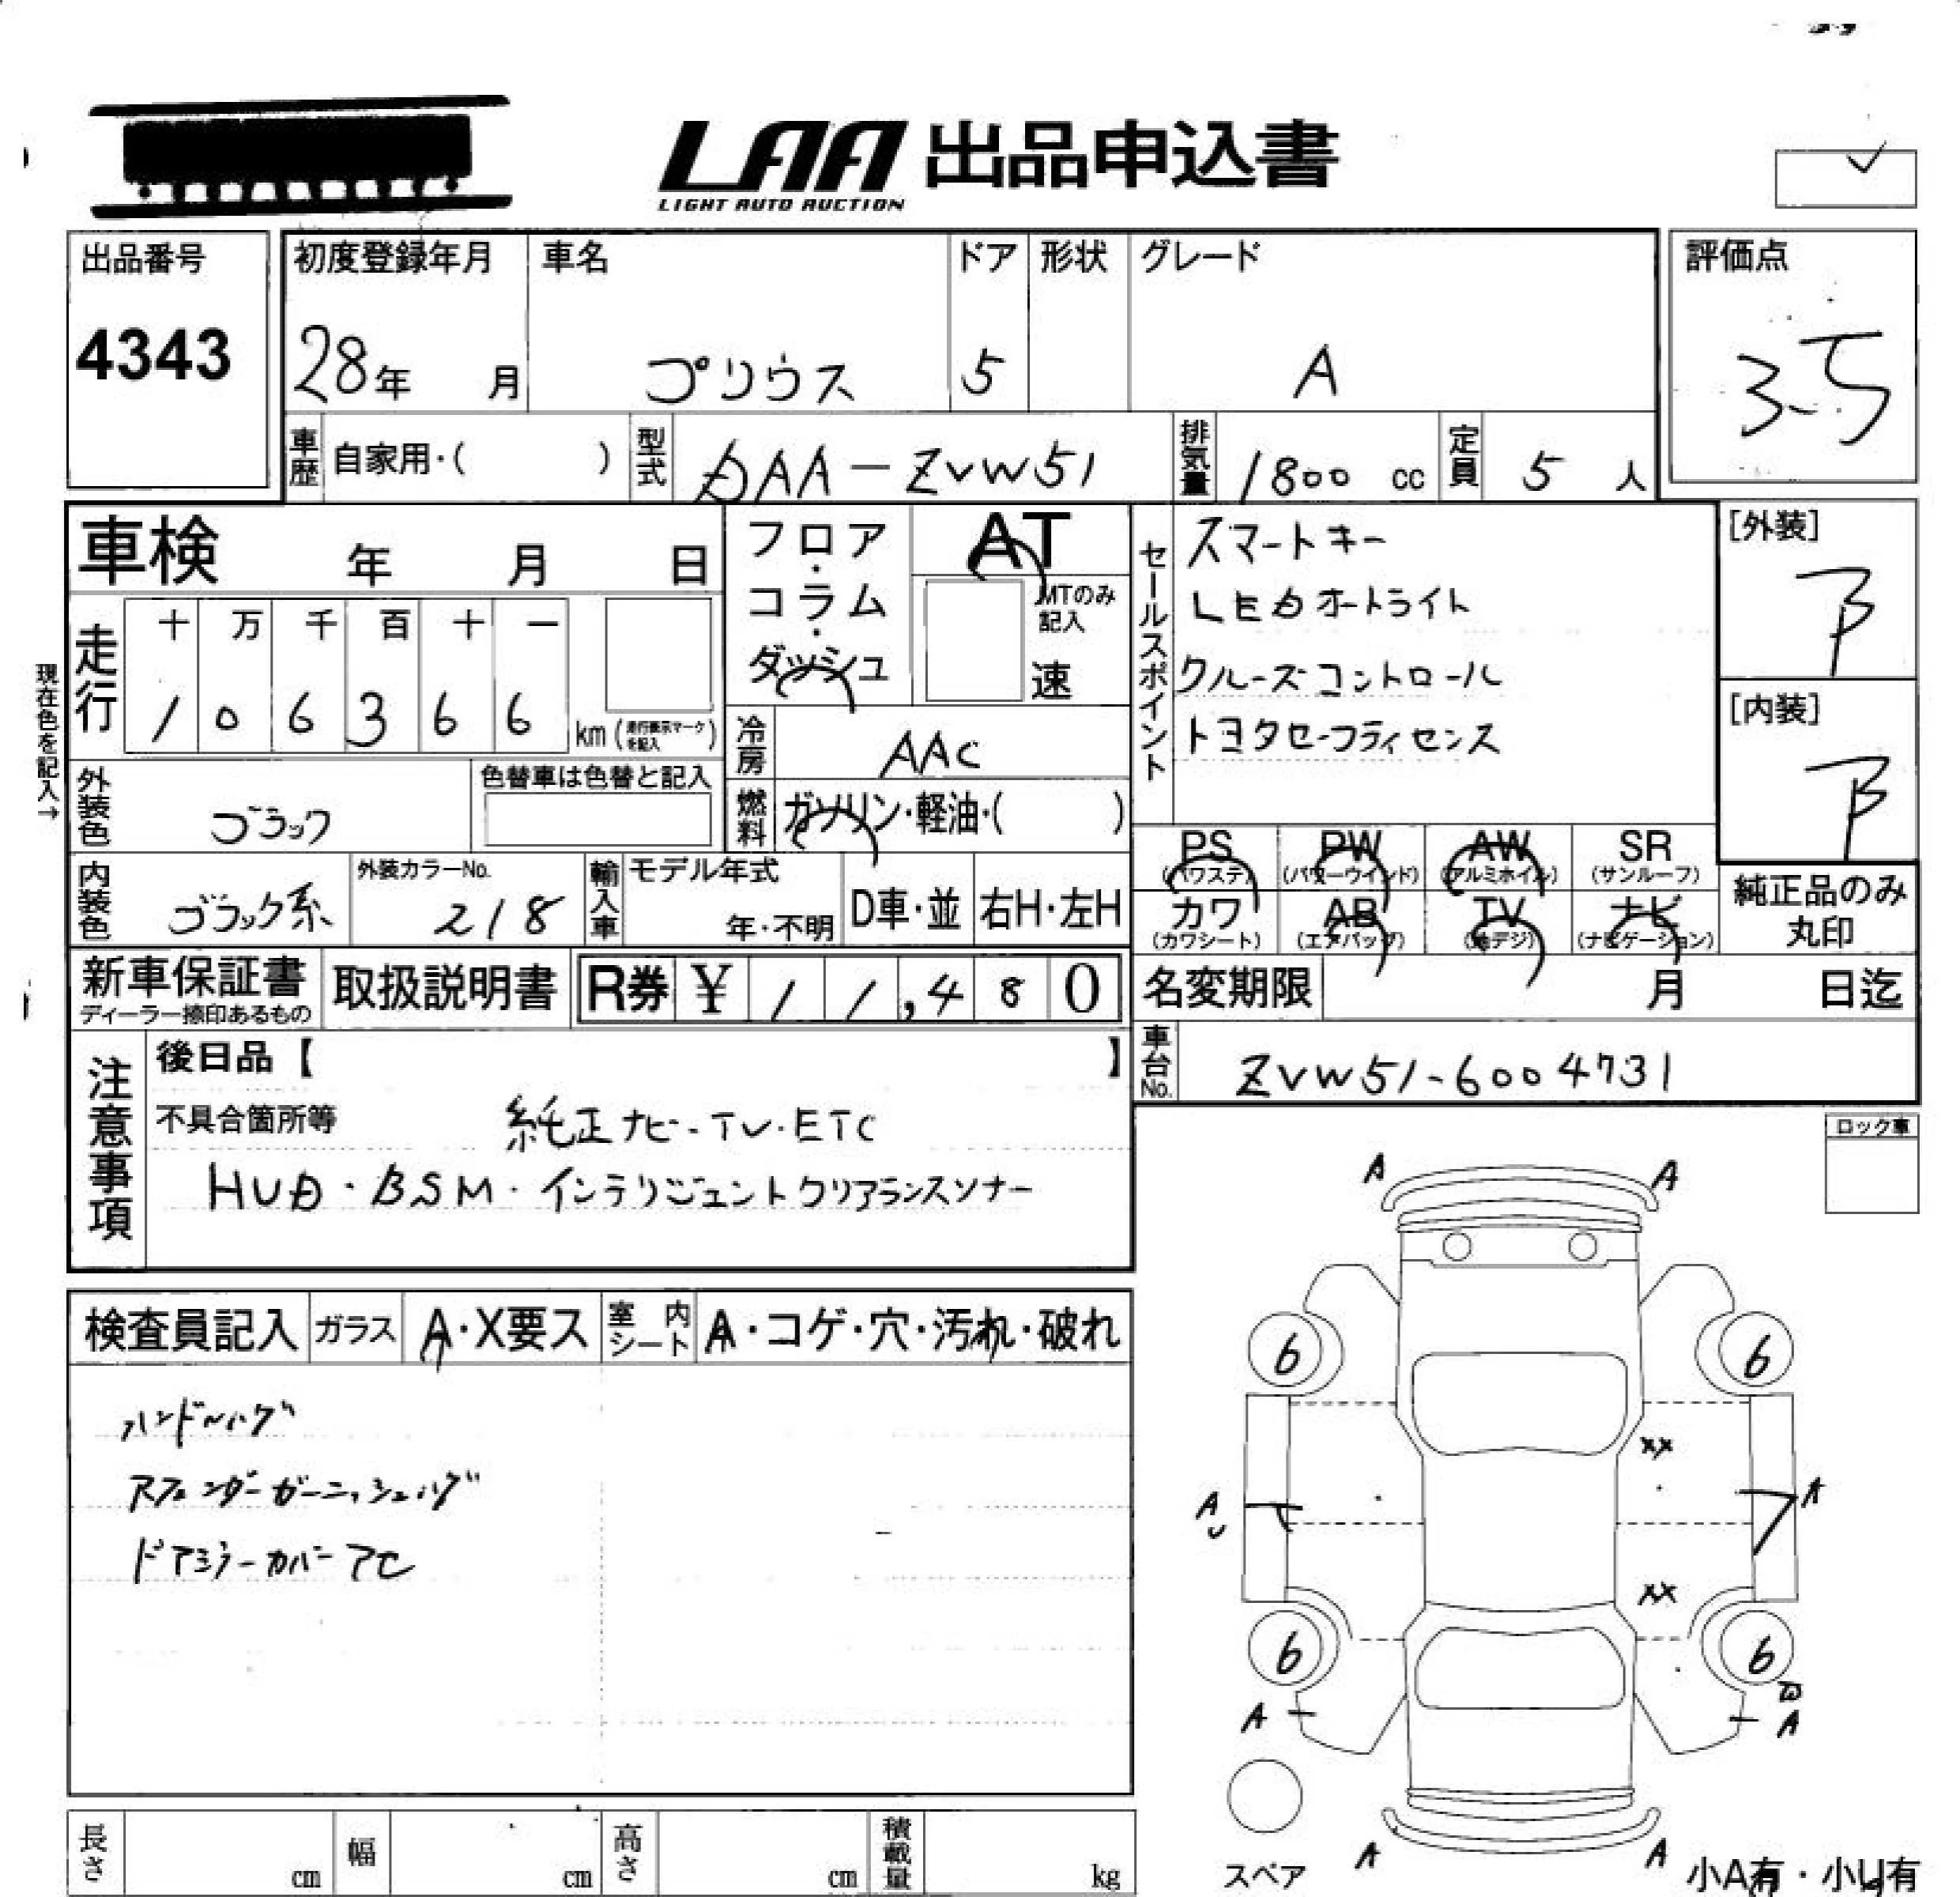 LAA 出品申込書
LIGHT AUTO AUCTION
出品番号
4343
初度登録年月 車名 ドア 形状 グレード
28年 月 プリウス 5 A
評価点
3.5
車歴 自家用・( ) 型式 DAA-ZVW51 排気量 1800 cc 定員 5 人
車検 年 月 日
フロア・コラム・ダッシュ
AT
MTのみ記入
速
セールスポイント
スマートキー
LEDオートライト
クルーズコントロール
トヨタセーフティセンス
[外装]
B
[内装]
B
現在色を記入→
走行 十 万 千 百 十 一
1 0 6 3 6 6 km (走行表示マークを記入)
冷房 AAC
外装色 ブラック
色替車は色替と記入
燃料 ガソリン・軽油・( )
内装色 ブラック系
外装カラーNo. 218
輸入車 モデル年式 年・不明 D車・並 右H・左H
PS (パワステ) PW (パワーウインド) AW (アルミホイル) SR (サンルーフ)
カワ (カワシート) AB (エアバッグ) TV (地デジ) ナビ (ナビゲーション)
純正品のみ
丸印
新車保証書 ディーラー捺印あるもの 取扱説明書 R券 ¥ 11,480
名変期限 月 日迄
車台No. ZVW51-6004731
注意事項
後日品【 】
不具合箇所等 純正ナビ・TV・ETC
HUD・BSM・インテリジェントクリアランスソナー
ロック車
検査員記入 ガラス A・X要ス 室内シート A・コゲ・穴・汚れ・破れ
ハンドルハゲ
Rフェンダーガーニッシュハゲ
ドアミラーカバーAC
A A
6 6
XX
A A
XX
6 6
A A
A A
スペア
小A有・小U有
長さ cm 幅 cm 高さ cm 積載量 kg